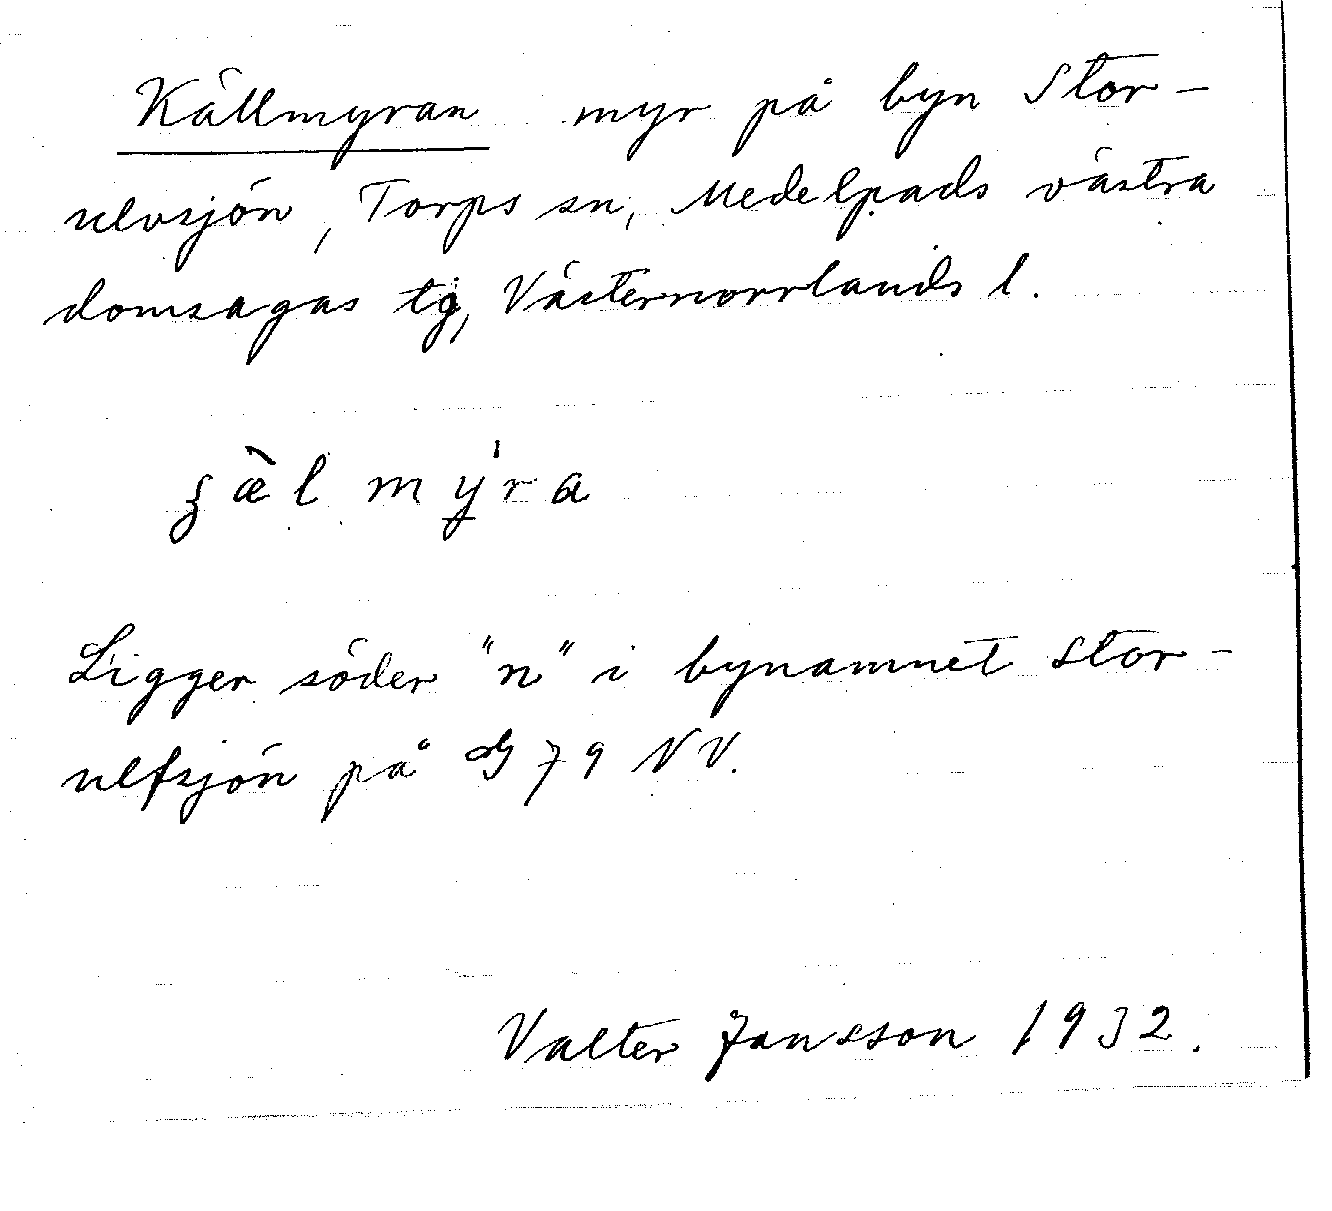 Källmyran myr på byn Stor-
ulvsjön, Torps sn, Medelpads västra
domsagas tg, Västernorrlands l.
ʒæ̀l mýra
Ligger söder "n" i bynamnet Stor-
ulfsjön på 79 NV.
Valter Jansson 1932.